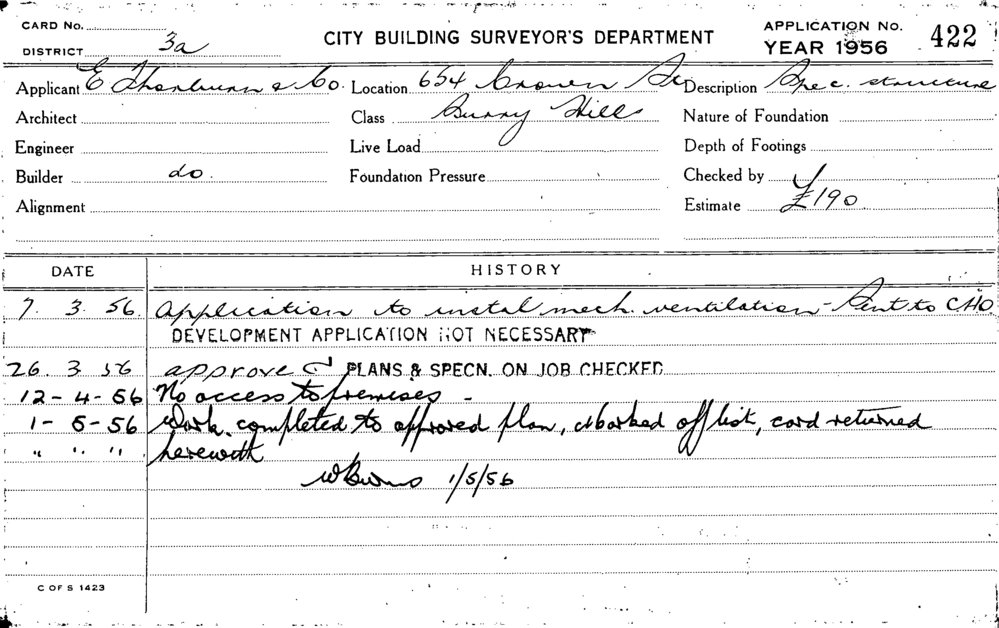 CARD No.
DISTRICT 3a
CITY BUILDING SURVEYOR'S DEPARTMENT
APPLICATION No. 422
YEAR 1956
Applicant E Thorburn & Co. Location 654 Crown St Description Spec. structure
Architect Class Surry Hills Nature of Foundation
Engineer Live Load Depth of Footings
Builder do. Foundation Pressure Checked by
Alignment Estimate £190
DATE HISTORY
7. 3. 56. Application to instal mech. ventilation - Sent to CHO
DEVELOPMENT APPLICATION NOT NECESSARY
26. 3 56 approved PLANS & SPECN. ON JOB CHECKED
12-4-56 No access to premises -
1-5-56 Work completed to approved plan, marked off list, card returned
" " " herewith
1/5/56
C OF S 1423